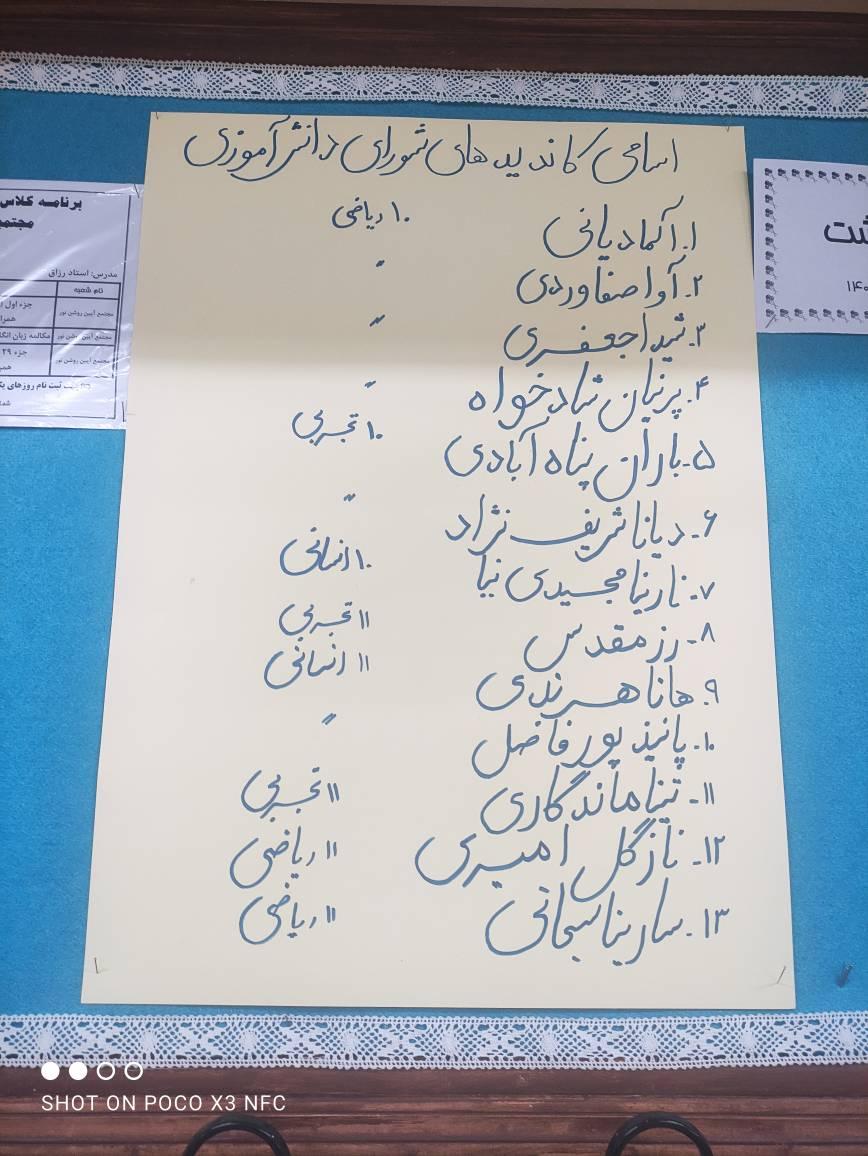 اسامی کاندیدهای شورای دانش آموزی
۱. آلما دیانی ۱۰ ریاضی
۲. آوا صفاوردی "
۳. شیدا جعفری "
۴. پرنیان شادخواه "
۵- باران پناه آبادی ۱۰ تجربی
۶. دیانا شریف نژاد "
۷- نارینا مجیدی نیا ۱۰ انسانی
۸- رز مقدس ۱۱ تجربی
۹. هانا هرندی ۱۱ انسانی
۱۰. پانیذ پور فاضل "
۱۱- تینا ماندگاری ۱۱ تجربی
۱۲- نازگل امیری ۱۱ ریاضی
۱۳- سارینا سبحانی ۱۱ ریاضی
برنامه کلاس
مجتمع
مدرس: استاد رزاق
نام شعبه
مجتمع آیین روشن نور
جزء اول
مجتمع آیین روشن نور
مکالمه زبان
مجتمع آیین روشن نور
جزء ۲۹
ثبت نام روزهای
SHOT ON POCO X3 NFC